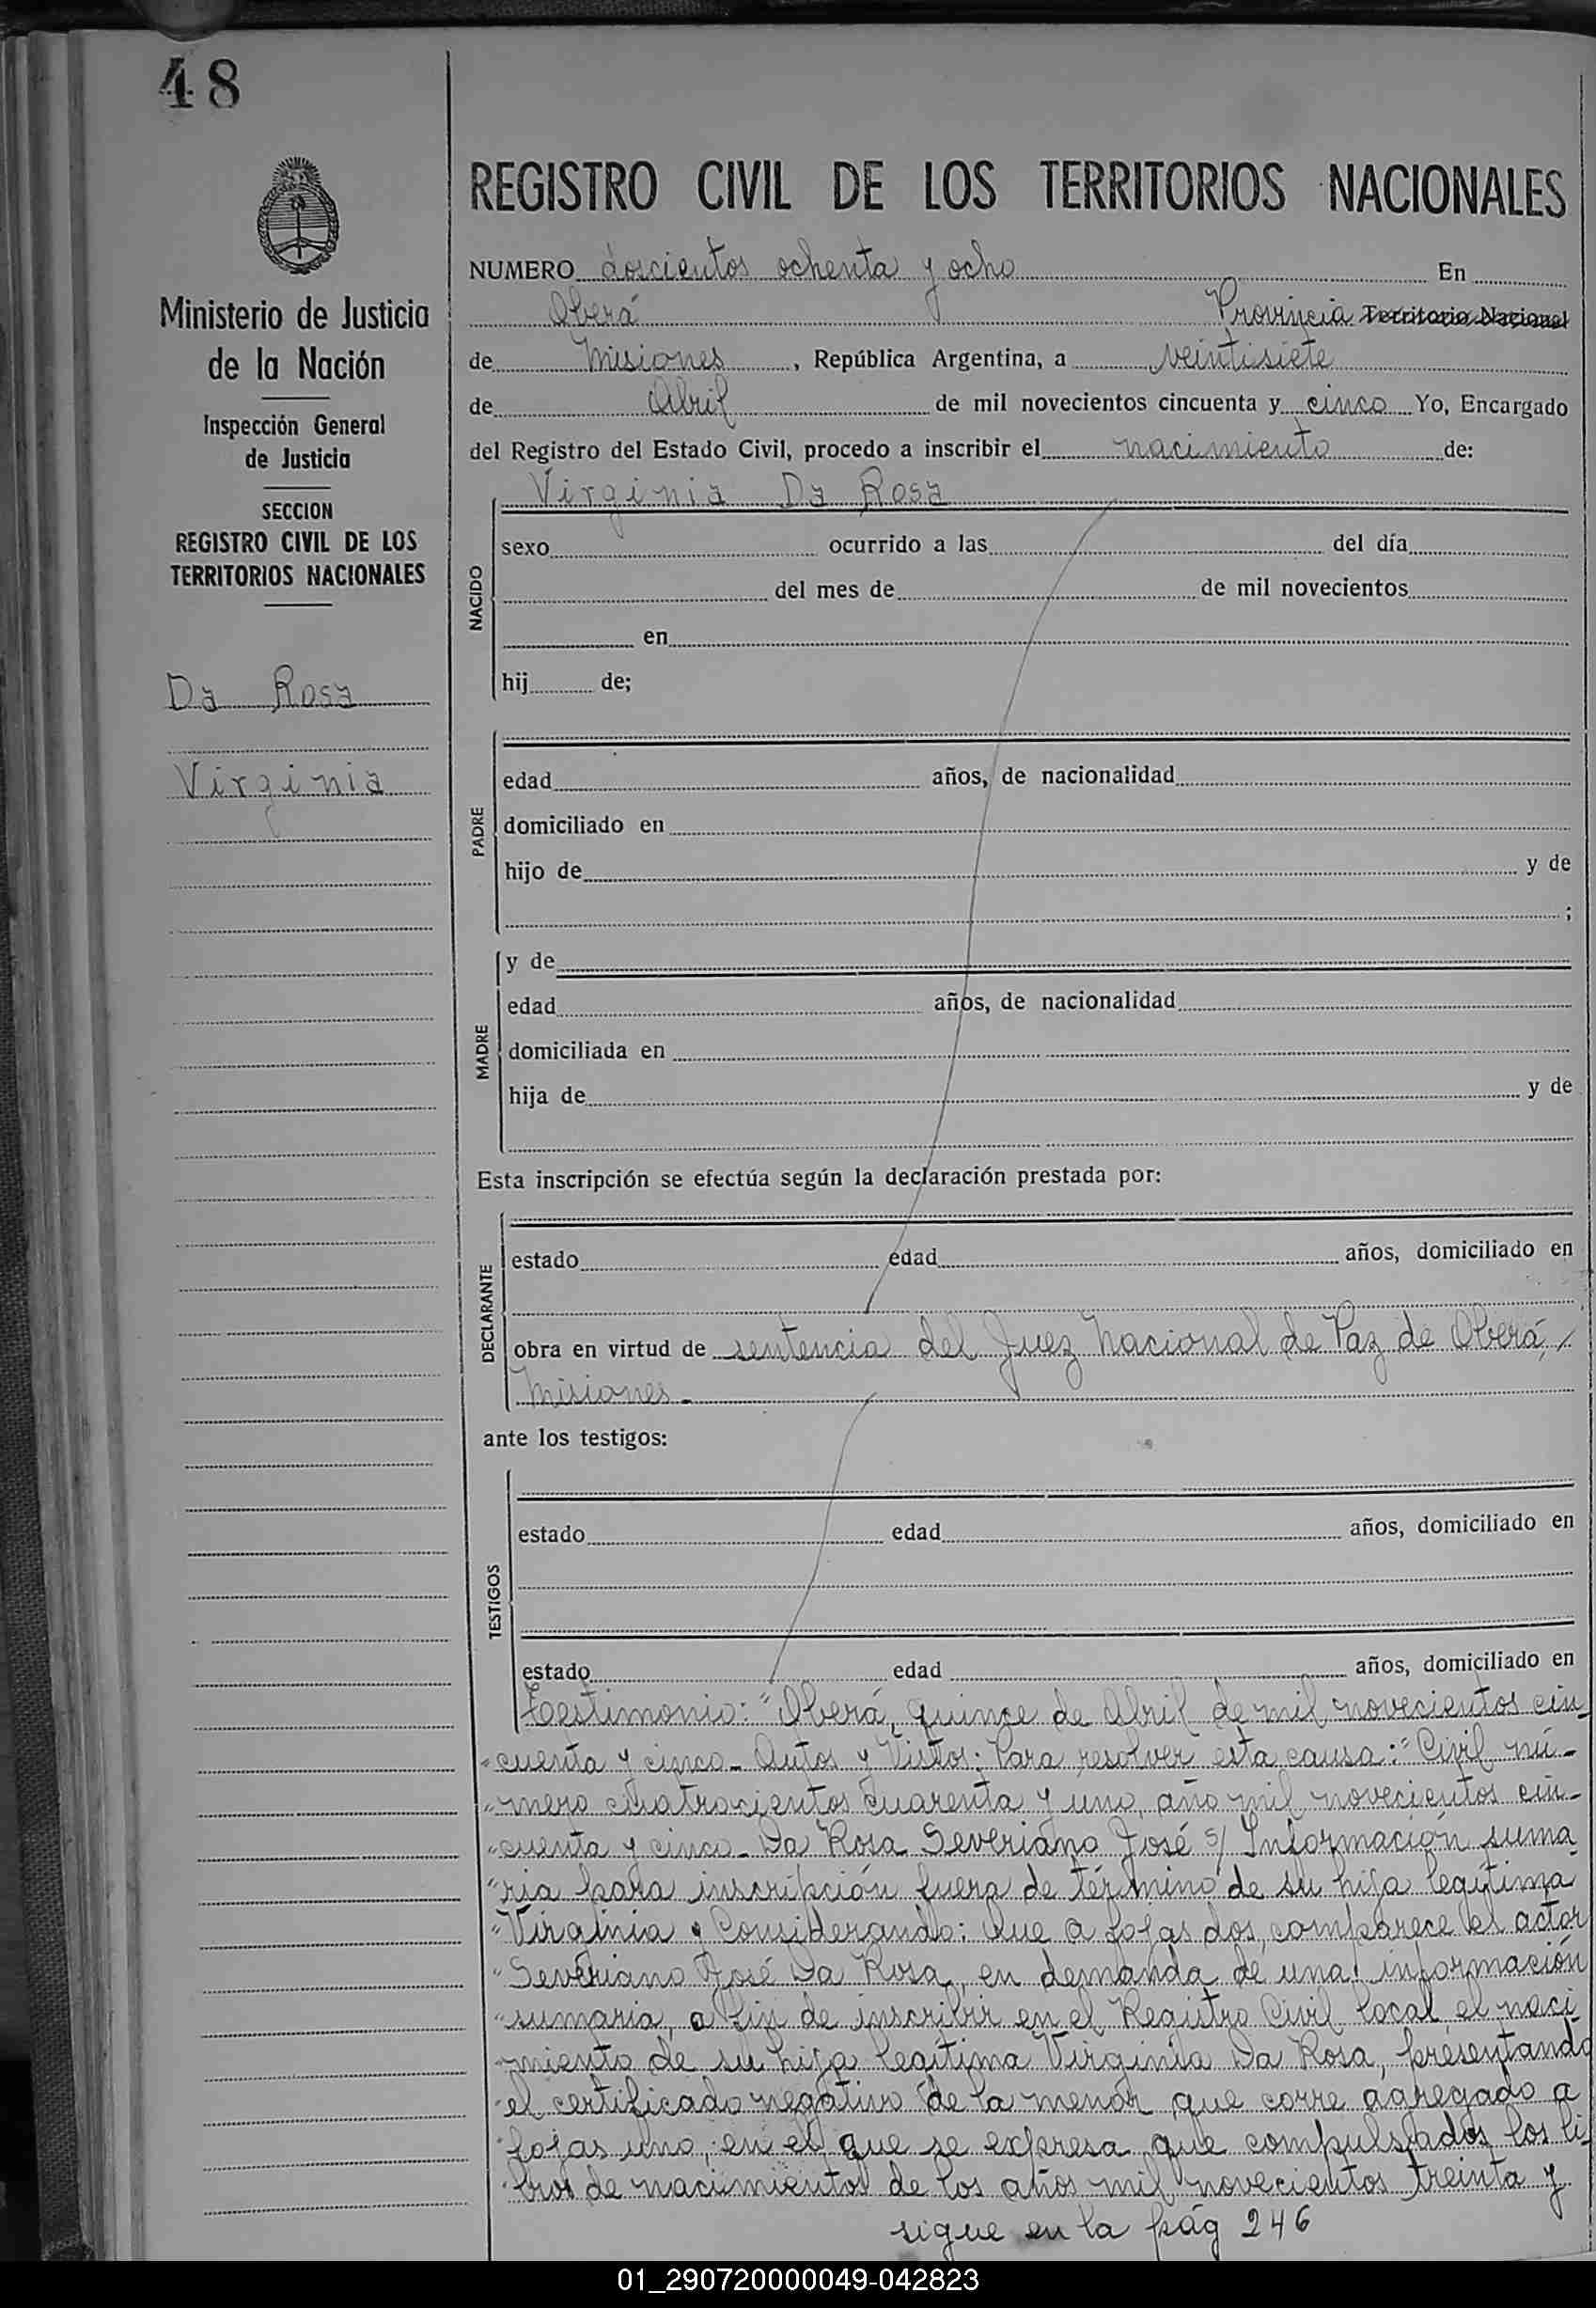 48
Ministerio de Justicia
de la Nación
Inspección General
de Justicia
SECCION
REGISTRO CIVIL DE LOS
TERRITORIOS NACIONALES
Da Rosa
Virginia
REGISTRO CIVIL DE LOS TERRITORIOS NACIONALES
NUMERO doscientos ochenta y ocho En
Oberá Provincia Territorio Nacional
de Misiones, República Argentina, a veintisiete
de Abril de mil novecientos cincuenta y cinco Yo, Encargado
del Registro del Estado Civil, procedo a inscribir el nacimiento de:
Virginia Da Rosa
NACIDO
sexo ocurrido a las del día
del mes de de mil novecientos
en
hij de;
PADRE
edad años, de nacionalidad
domiciliado en
hijo de y de
;
MADRE
y de
edad años, de nacionalidad
domiciliada en
hija de y de
Esta inscripción se efectúa según la declaración prestada por:
DECLARANTE
estado edad años, domiciliado en
obra en virtud de sentencia del Juez Nacional de Paz de Oberá, /
Misiones.-
ante los testigos:
TESTIGOS
estado edad años, domiciliado en
estado edad años, domiciliado en
Testimonio: "Oberá, quince de Abril de mil novecientos cin-
"cuenta y cinco- Autos y Vistos: Para resolver esta causa: "Civil nú-
"mero cuatrocientos cuarenta y uno, año mil novecientos cin-
"cuenta y cinco- Da Rosa Severiano José s/ Información suma
"ria para inscripción fuera de término de su hija legítima
"Virginia y Considerando: Que a fojas dos, comparece el actor
"Severiano José Da Rosa, en demanda de una información
"sumaria, a fin de inscribir en el Registro Civil local el naci
"miento de su hija legítima Virginia Da Rosa, presentando
"el certificado negativo de la menor que corre agregado a
"fojas uno, en el que se expresa que compulsados los li-
"bros de nacimientos de los años mil novecientos treinta y
sigue en la pág 246
01_290720000049-042823